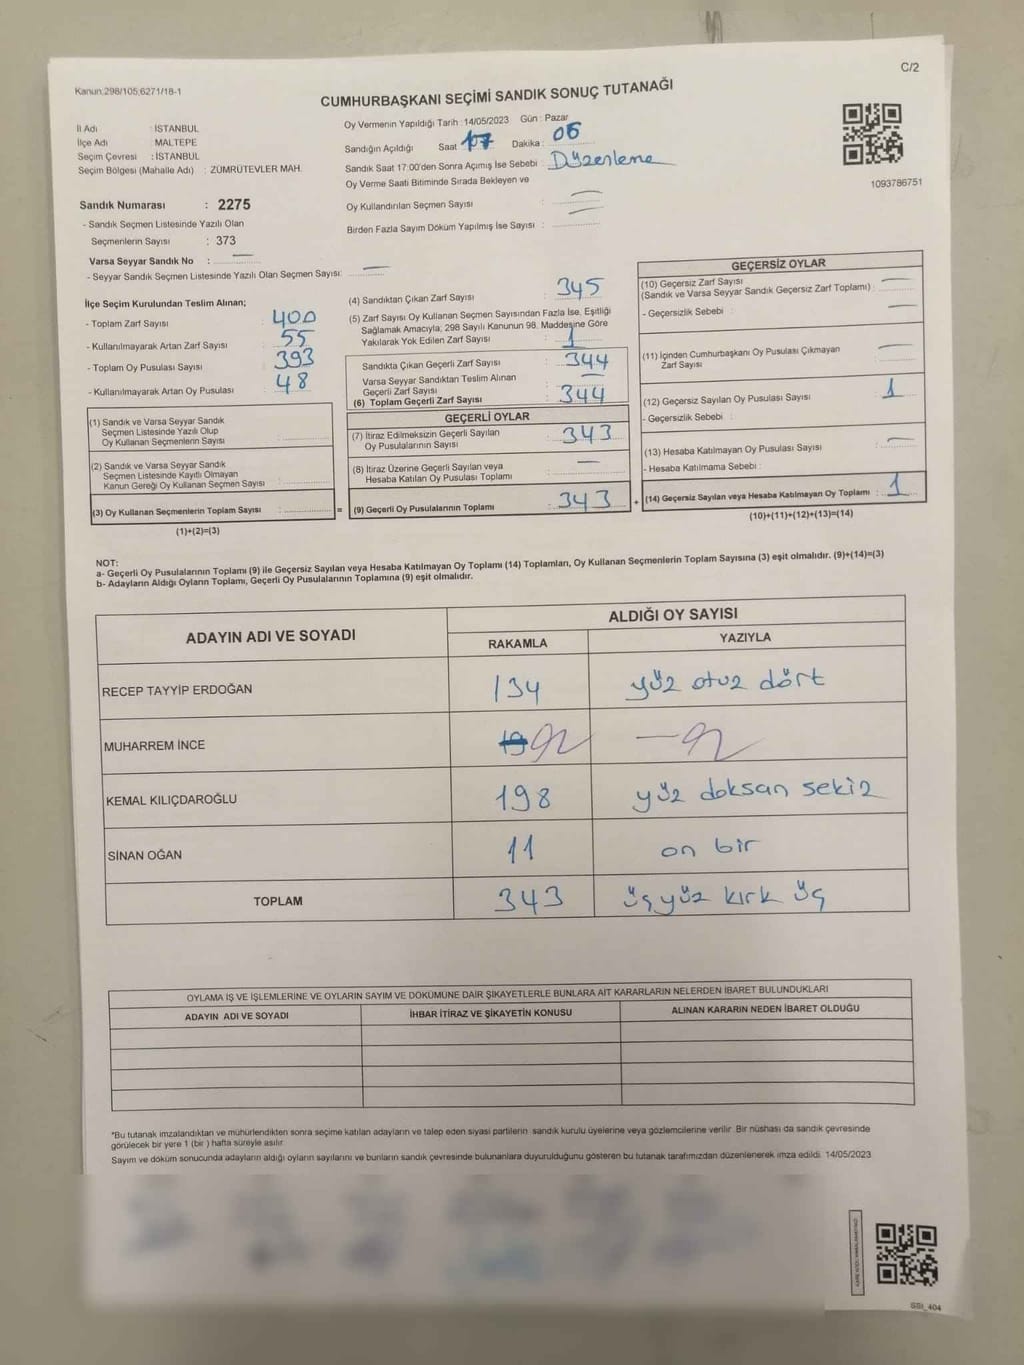 C/2
Kanun:298/105,6271/18-1
CUMHURBAŞKANI SEÇİMİ SANDIK SONUÇ TUTANAĞI
İl Adı : İSTANBUL
İlçe Adı : MALTEPE
Seçim Çevresi : İSTANBUL
Seçim Bölgesi (Mahalle Adı) : ZÜMRÜTEVLER MAH.
Oy Vermenin Yapıldığı Tarih : 14/05/2023 Gün : Pazar
Sandığın Açıldığı Saat 17 Dakika : 06
Sandık Saat 17:00'den Sonra Açımış İse Sebebi : Düzenleme
Oy Verme Saati Bitiminde Sırada Bekleyen ve
Oy Kullandırılan Seçmen Sayısı : —
Birden Fazla Sayım Döküm Yapılmış İse Sayısı : —
1093786751
Sandık Numarası : 2275
- Sandık Seçmen Listesinde Yazılı Olan
Seçmenlerin Sayısı : 373
Varsa Seyyar Sandık No : —
- Seyyar Sandık Seçmen Listesinde Yazılı Olan Seçmen Sayısı: —
İlçe Seçim Kurulundan Teslim Alınan;
- Toplam Zarf Sayısı : 400
- Kullanılmayarak Artan Zarf Sayısı : 55
- Toplam Oy Pusulası Sayısı : 393
- Kullanılmayarak Artan Oy Pusulası : 48
(1) Sandık ve Varsa Seyyar Sandık
Seçmen Listesinde Yazılı Olup
Oy Kullanan Seçmenlerin Sayısı :
(2) Sandık ve Varsa Seyyar Sandık
Seçmen Listesinde Kayıtlı Olmayan
Kanun Gereği Oy Kullanan Seçmen Sayısı :
(3) Oy Kullanan Seçmenlerin Toplam Sayısı : =
(1)+(2)=(3)
(4) Sandıktan Çıkan Zarf Sayısı : 345
(5) Zarf Sayısı Oy Kullanan Seçmen Sayısından Fazla İse, Eşitliği
Sağlamak Amacıyla; 298 Sayılı Kanunun 98. Maddesine Göre
Yakılarak Yok Edilen Zarf Sayısı : 1
Sandıkta Çıkan Geçerli Zarf Sayısı : 344
Varsa Seyyar Sandıktan Teslim Alınan
Geçerli Zarf Sayısı : —
(6) Toplam Geçerli Zarf Sayısı : 344
GEÇERLİ OYLAR
(7) İtiraz Edilmeksizin Geçerli Sayılan
Oy Pusulalarının Sayısı : 343
(8) İtiraz Üzerine Geçerli Sayılan veya
Hesaba Katılan Oy Pusulası Toplamı : —
(9) Geçerli Oy Pusulalarının Toplamı : 343 +
GEÇERSİZ OYLAR
(10) Geçersiz Zarf Sayısı
(Sandık ve Varsa Seyyar Sandık Geçersiz Zarf Toplamı) : —
- Geçersizlik Sebebi : —
(11) İçinden Cumhurbaşkanı Oy Pusulası Çıkmayan
Zarf Sayısı : —
(12) Geçersiz Sayılan Oy Pusulası Sayısı : 1
- Geçersizlik Sebebi :
(13) Hesaba Katılmayan Oy Pusulası Sayısı : —
- Hesaba Katılmama Sebebi :
(14) Geçersiz Sayılan veya Hesaba Katılmayan Oy Toplamı : 1
(10)+(11)+(12)+(13)=(14)
NOT:
a- Geçerli Oy Pusulalarının Toplamı (9) ile Geçersiz Sayılan veya Hesaba Katılmayan Oy Toplamı (14) Toplamları, Oy Kullanan Seçmenlerin Toplam Sayısına (3) eşit olmalıdır. (9)+(14)=(3)
b- Adayların Aldığı Oyların Toplamı, Geçerli Oy Pusulalarının Toplamına (9) eşit olmalıdır.
ADAYIN ADI VE SOYADI ALDIĞI OY SAYISI
RAKAMLA YAZIYLA
RECEP TAYYİP ERDOĞAN 134 yüz otuz dört
MUHARREM İNCE
KEMAL KILIÇDAROĞLU 198 yüz doksan sekiz
SİNAN OĞAN 11 on bir
TOPLAM 343 üçyüz kırk üç
OYLAMA İŞ VE İŞLEMLERİNE VE OYLARIN SAYIM VE DÖKÜMÜNE DAİR ŞİKAYETLERLE BUNLARA AİT KARARLARIN NELERDEN İBARET BULUNDUKLARI
ADAYIN ADI VE SOYADI İHBAR İTİRAZ VE ŞİKAYETİN KONUSU ALINAN KARARIN NEDEN İBARET OLDUĞU
*Bu tutanak imzalandıktan ve mühürlendikten sonra seçime katılan adayların ve talep eden siyasi partilerin sandık kurulu üyelerine veya gözlemcilerine verilir. Bir nüshası da sandık çevresinde
görülecek bir yere 1 (bir ) hafta süreyle asılır.
Sayım ve döküm sonucunda adayların aldığı oyların sayılarını ve bunların sandık çevresinde bulunanlara duyurulduğunu gösteren bu tutanak tarafımızdan düzenlenerek imza edildi. 14/05/2023
SSI_404